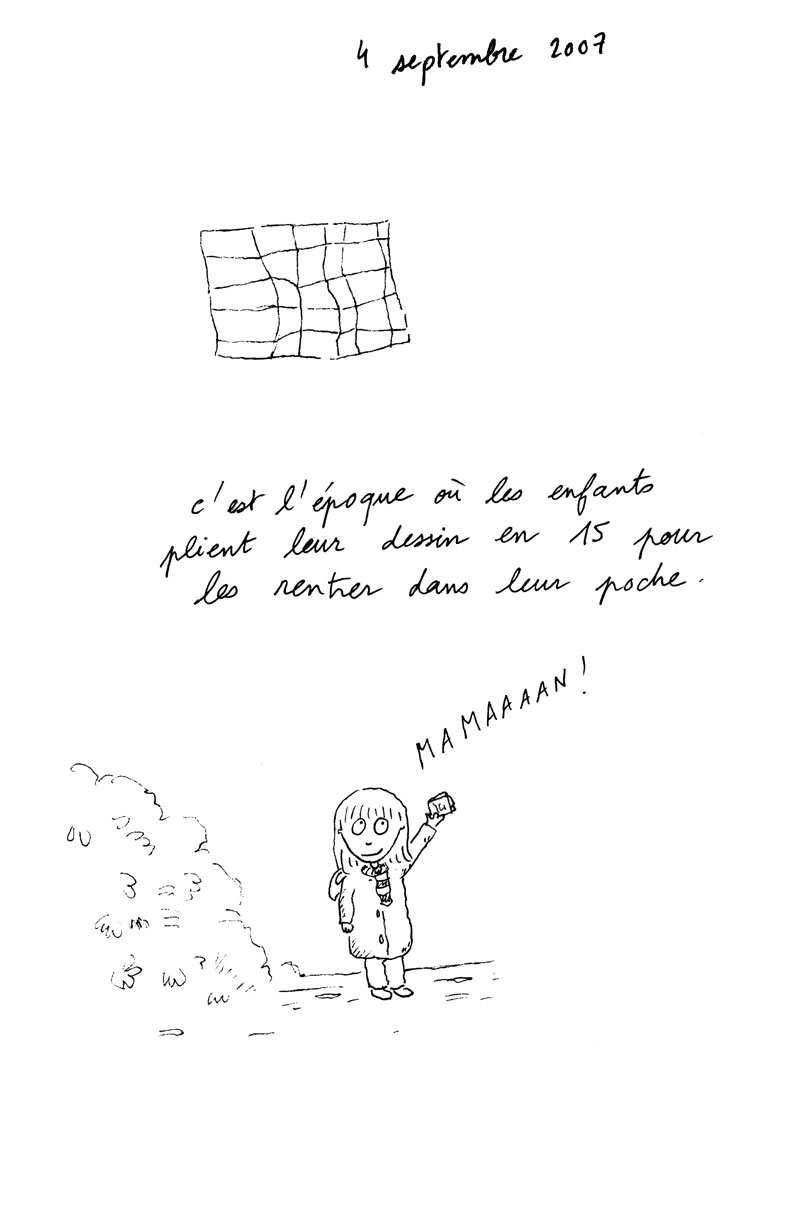 4 septembre 2007
c'est l'époque où les enfants
plient leur dessin en 15 pour
les rentrer dans leur poche.
MAMAAAAN!